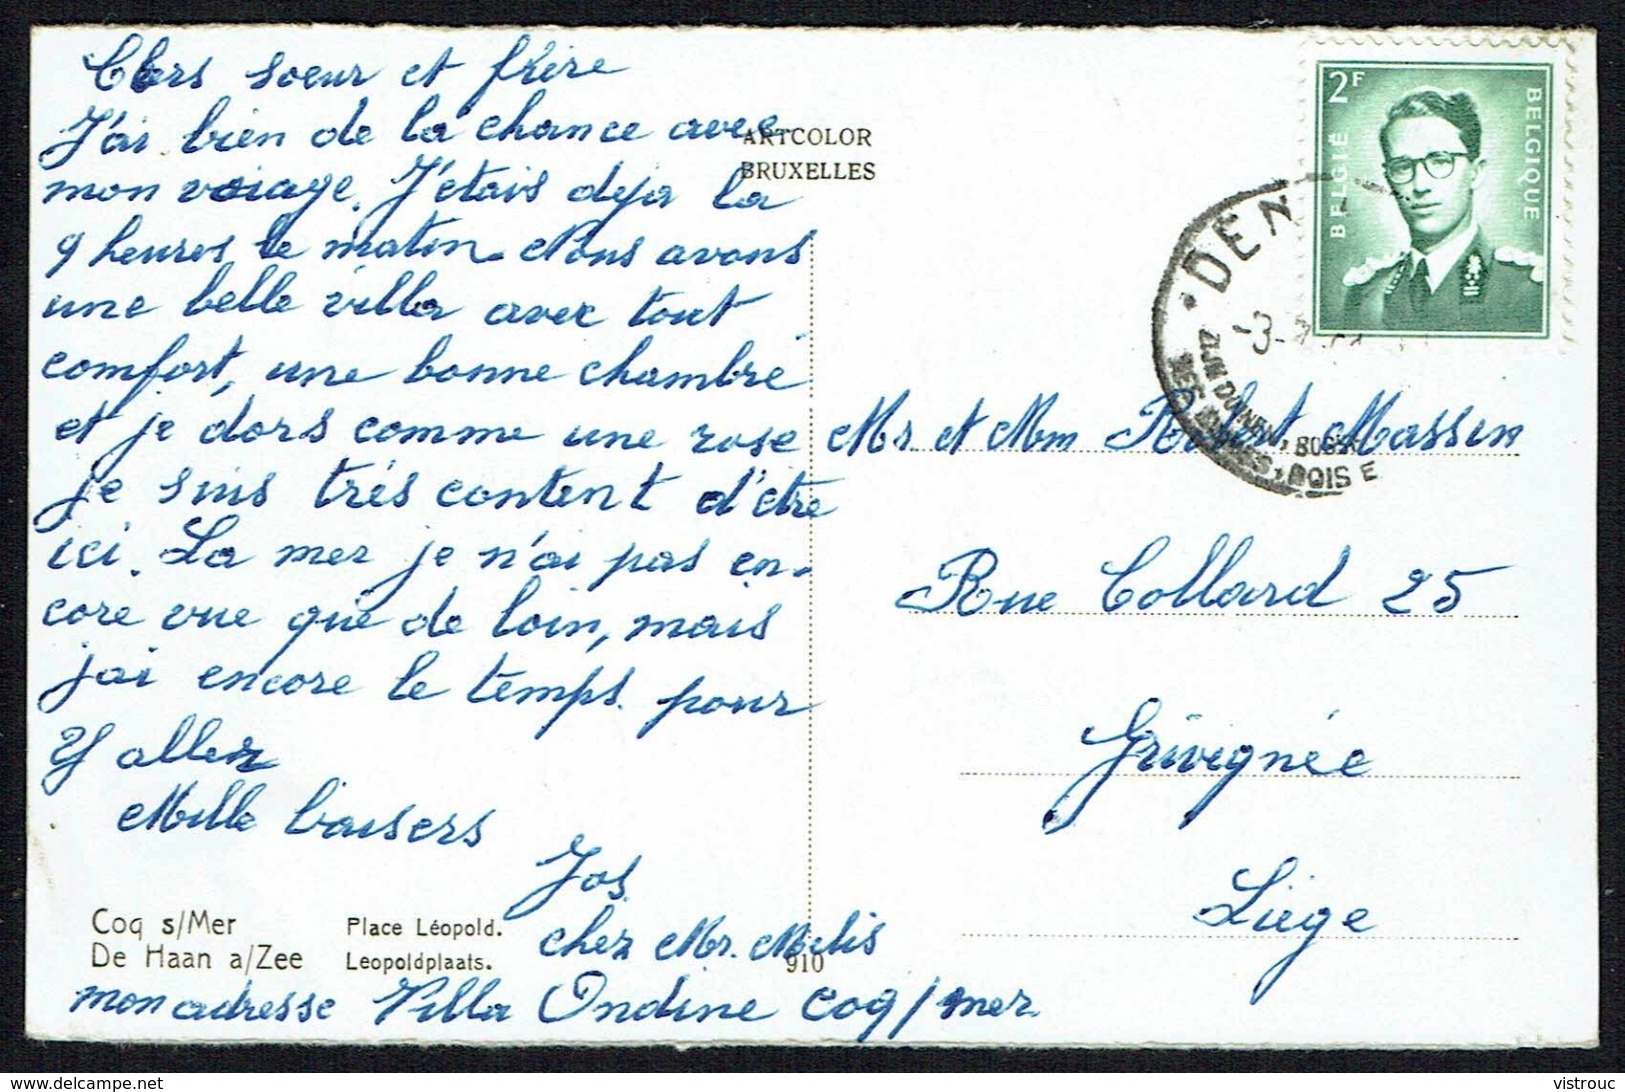 Chers soeur et frère
J'ai bien de la chance avec
mon voiage. J'etais deja la
9 heures le matin. Nous avons
une belle villa avec tout
comfort, une bonne chambre
et je dors comme une rose
je suis très content d'être
ici. La mer je n'ai pas en-
core vue que de loin, mais
j'ai encore le temps pour
y aller
Mille baisers
Jos
chez Mr. Melis
mon adresse Villa Ondine Coq/mer
ARTCOLOR
BRUXELLES
Coq s/Mer Place Léopold.
De Haan a/Zee Leopoldplaats.
910
2F
BELGIË BELGIQUE
DEN
ZIJN DUINEN, BOS
SES DUNES, BOIS E
Mr et Mm Robert Massin
Rue Collard 25
Grivegnée
Liège
vistrouc